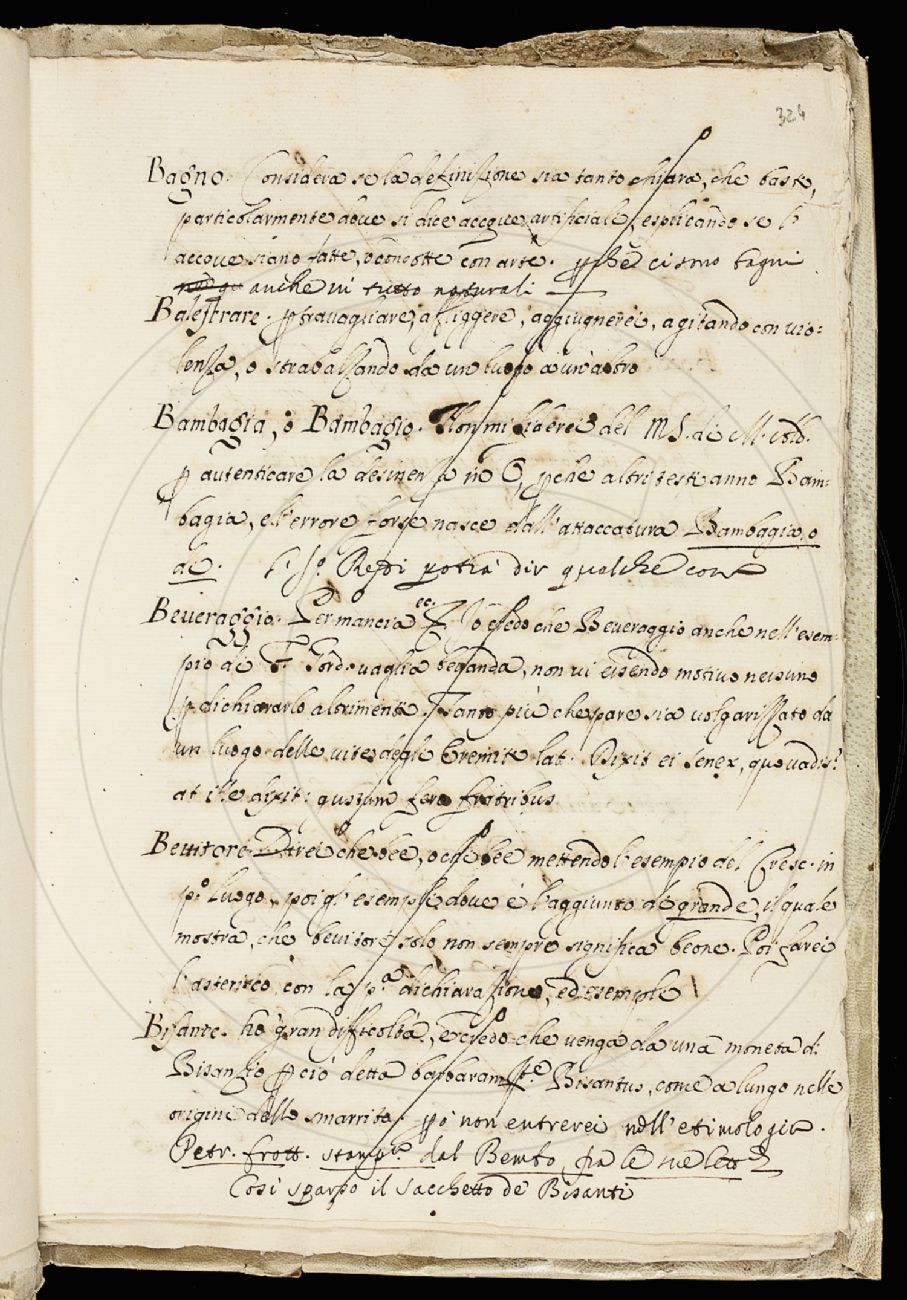 324
Bagno. Considera se la definizione sia tanto chiara, che basti,
particolarmente dove si dice accque artificiale, esplicando se l'
accque siano fatte, o condotte con arte. ci sono bagni
anche vi tutto naturali
Balestrare. travagliare, affliggere, aggiugnerei, agitando con vio=
lenza, o strabalzando da un luogo a un altro
Bambagia, o Bambagio. Non mi fiderei del MS. di M.
p autenticare la desinenza in O, pche altri testi anno Bam=
bagia, e l'errore forse nasce dall'attaccatura Bambagia, o
di. Redi potrà dir qualche cosa
Beveraggio. Per mancia ec. Io credo che Beveraggio anche nell'esem=
pio di vaglia bevanda, non vi essendo motivo nessuno
p dichiararlo altrimenti. Tanto più che pare sia volgarizzato da
un luogo delle vite degli Eremiti lat. Dixit ei Senex, quo vadis?
at ille dixit: gustum fero fratribus
Bevitore. Direi che bee, o chi bee mettendo l'esempio del Cresc. in
po luogo, poi gl'esempli dove è l'aggiunto di grande, il quale
mostra, che bevitore solo non sempre significa beone. Poi farei
l'asterisco con la pa dichiarazione, ed esempli
Bisante. ho gran difficoltà, e credo che venga da una moneta di
Bisanzio p ciò detta barbaramte Bisantus, come a lungo nelle
origini dello smarrito. po non entrerei nell'etimologia.
Petr. frott. stampa. dal Bembo, fra le sue lett.
Così sparso il sacchetto de Bisanti